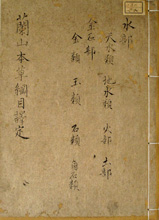 水部
天水類 地水類 火部 土部
金石部
金類 玉類 石類 鹵石類
蘭山本草綱目譯定